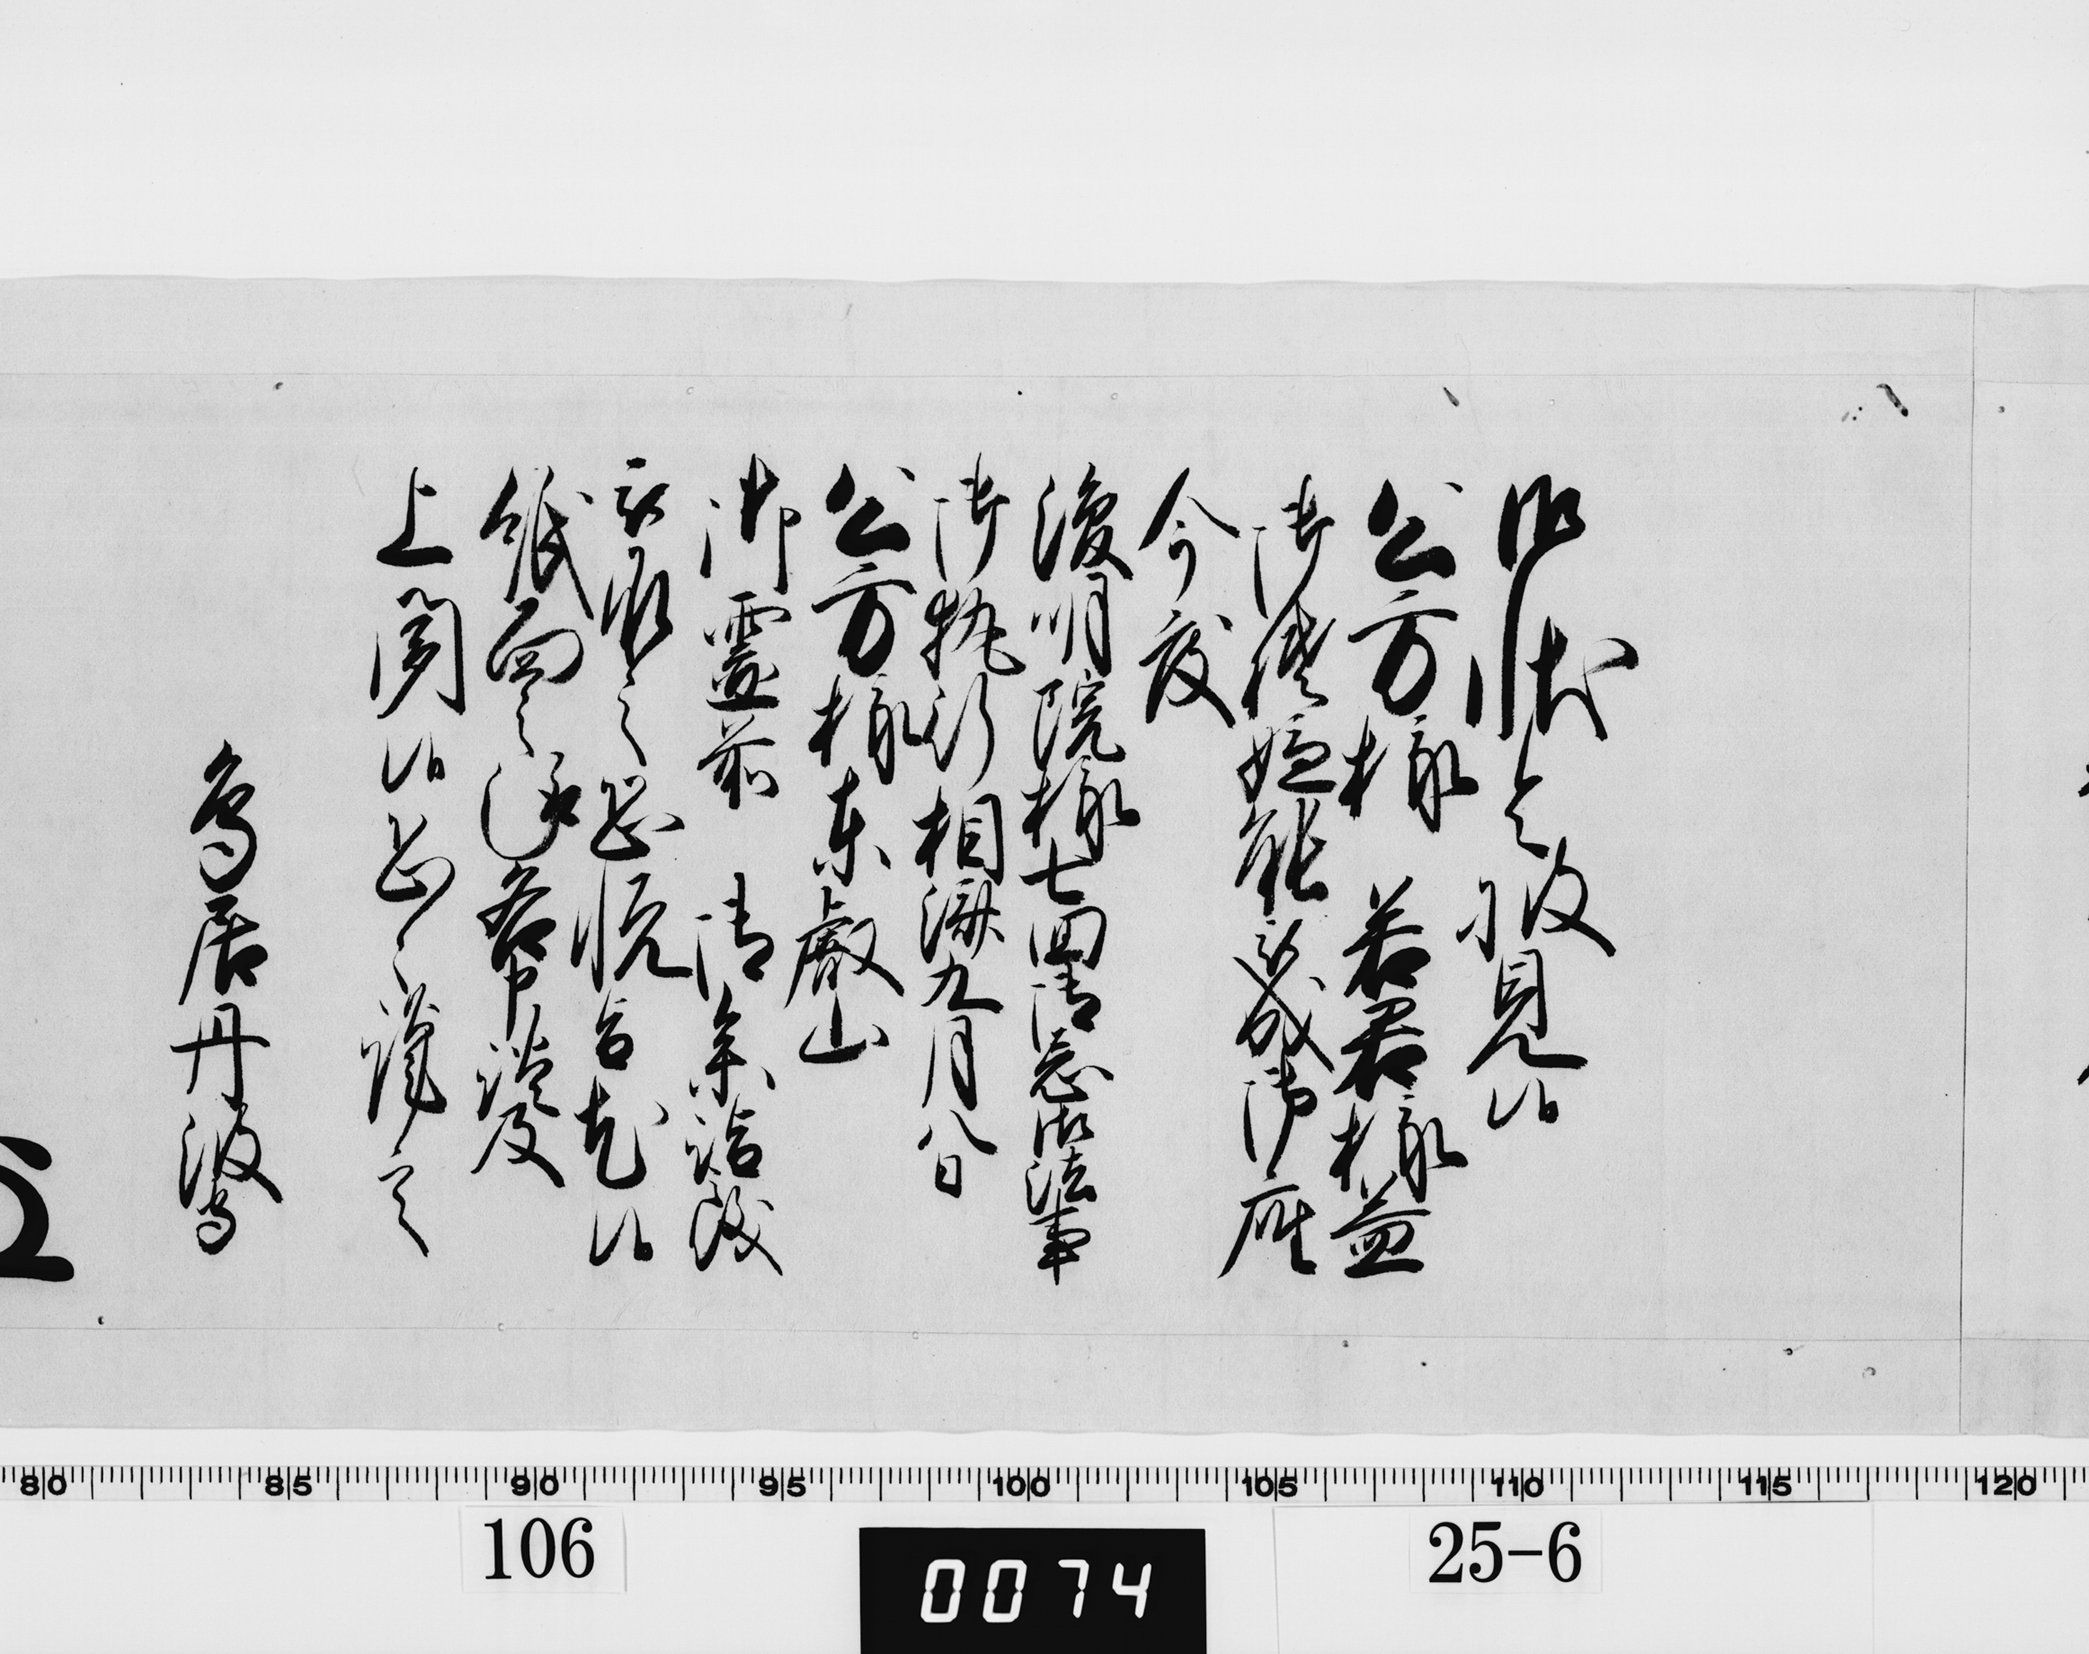 御状令披見候
公方様 若君様益
御機嫌能被成御座
今度
浚明院様七回御忌御法事
御執行相済九月八日
公方様東叡山
御霊前 御参詣被
為成之恐悦旨尤候
紙面之趣各申談及
上聞候恐々謹言
鳥居丹波守
80 85 90 95 100 105 110 115 120
106
0074
25-6